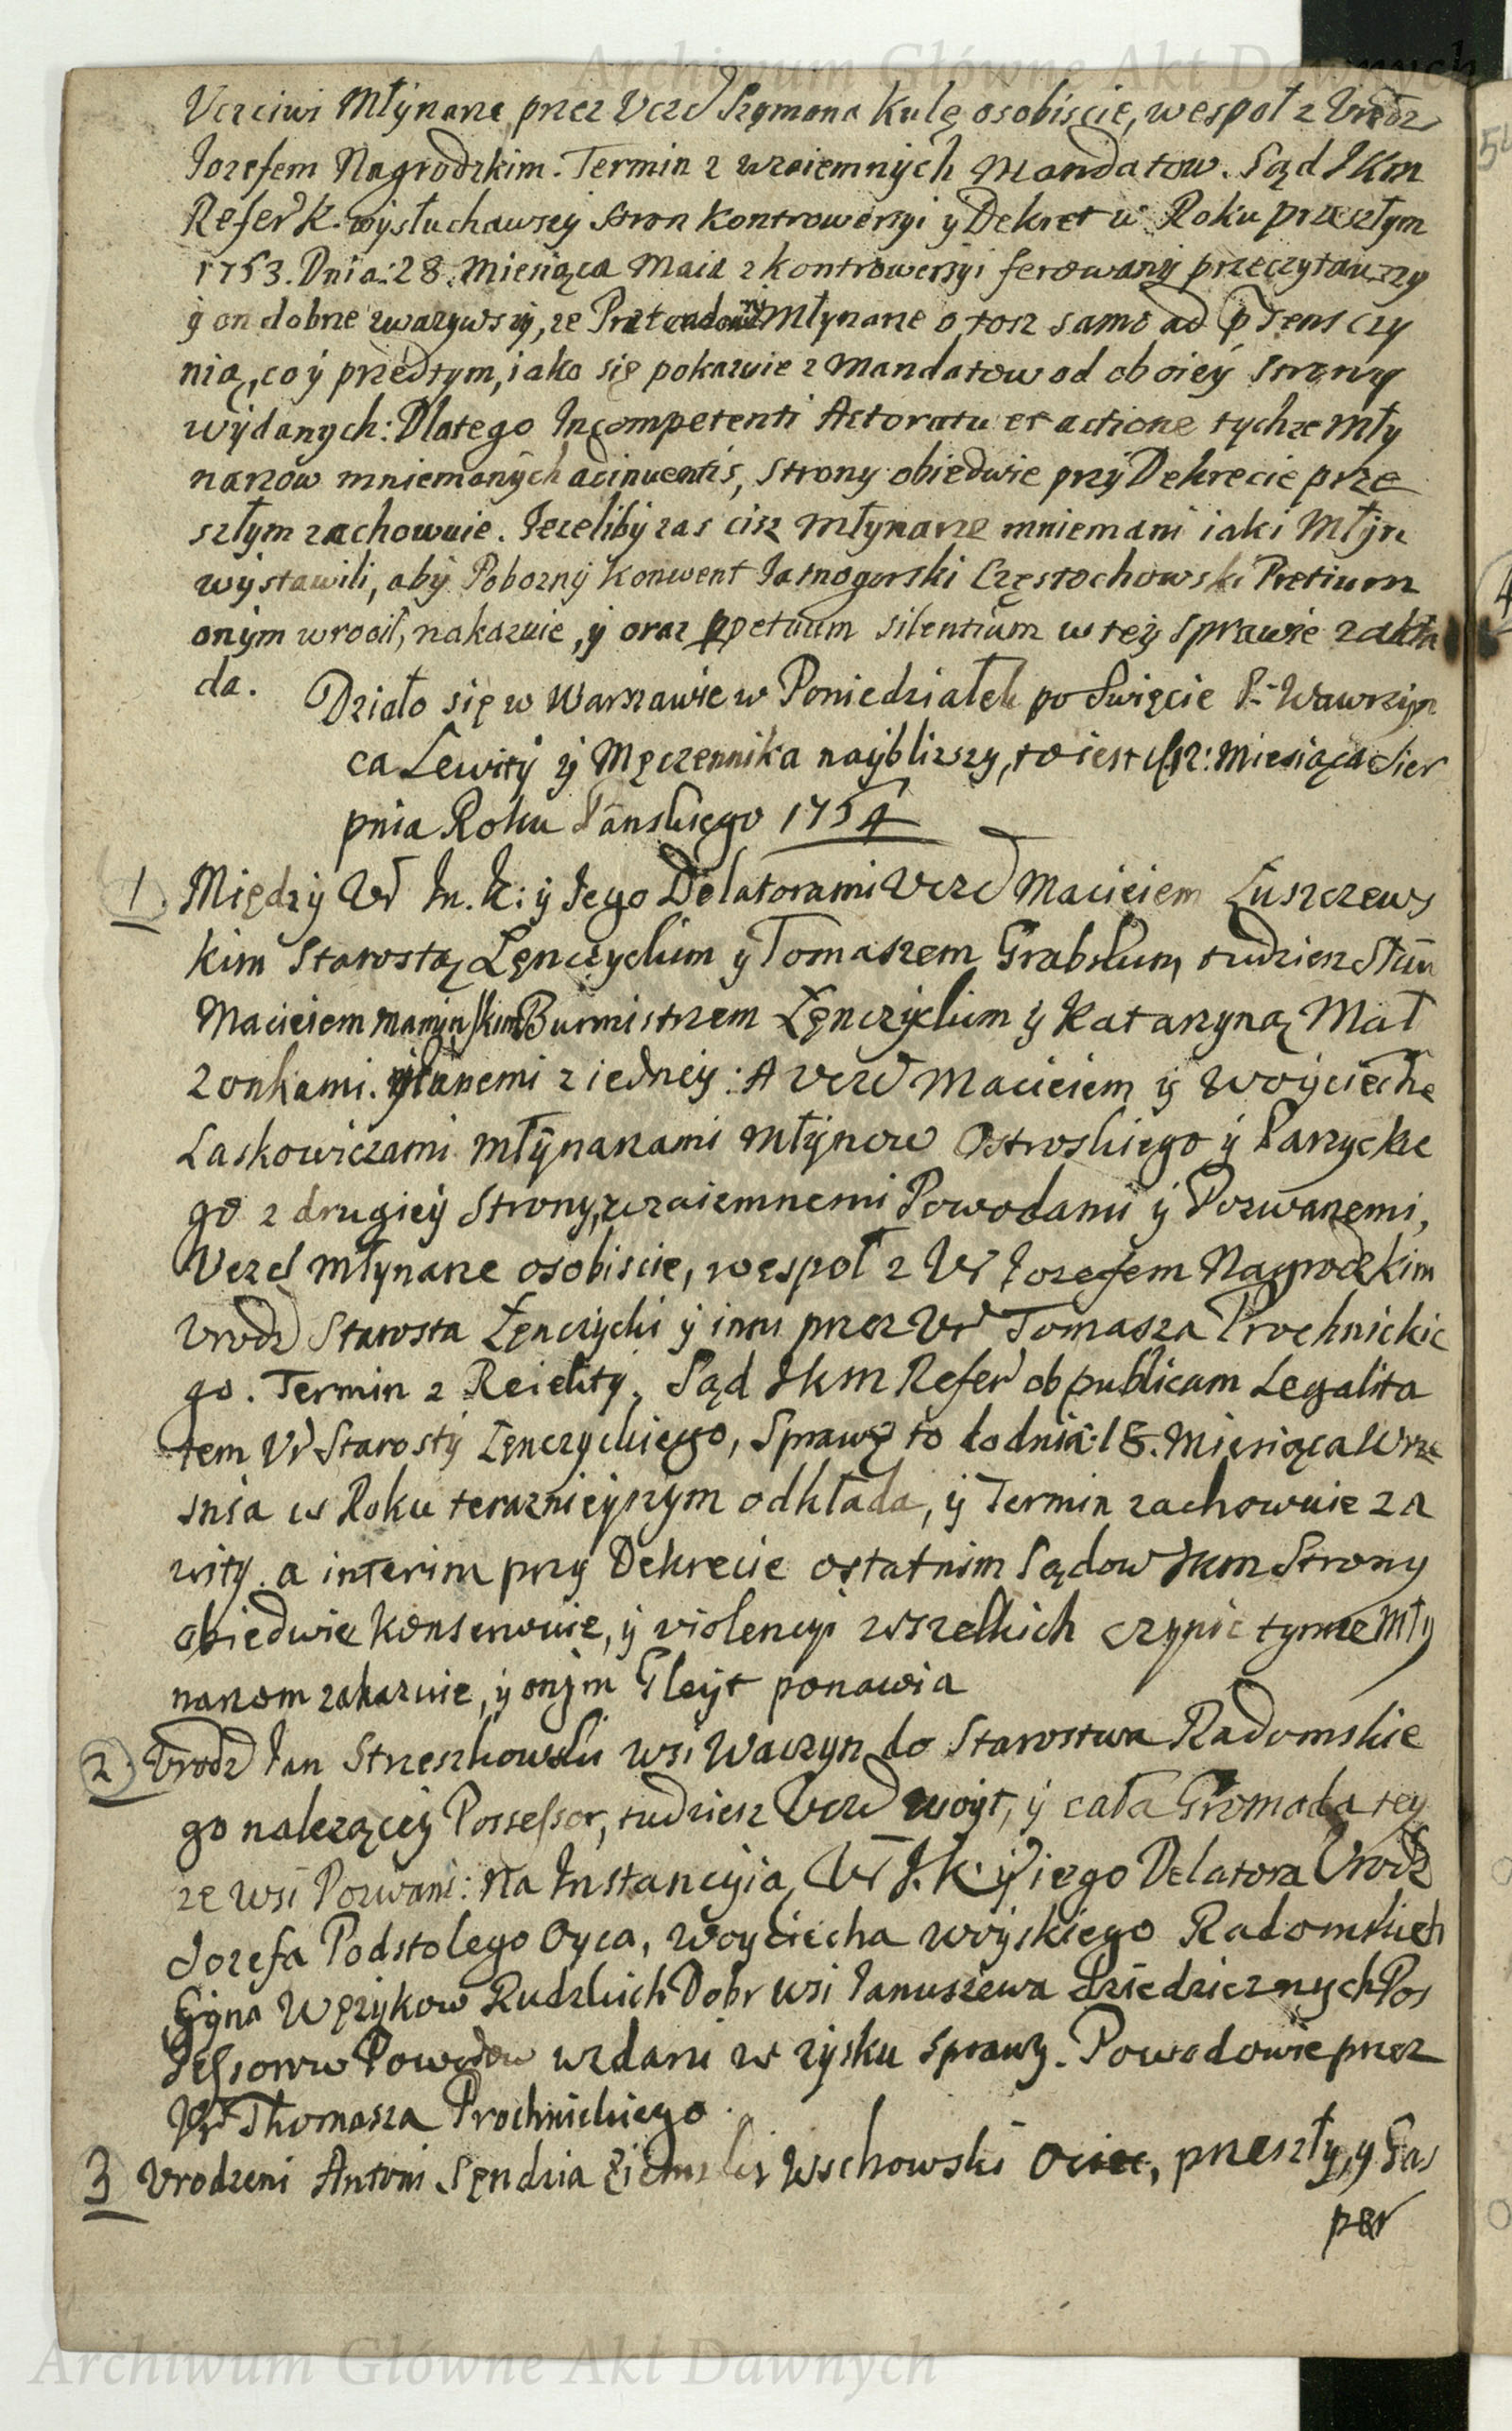 Archiwum Główne Akt Dawnych
Ucziwi Młynarze przez Uczd Szymona Kulę osobiscie, wespoł z Urodz
Iozefem Nagrodzkim. Termin z wzaiemnych Mandatow. Sąd JKM
Refer K. wysłuchawszy stron kontrowersyi y Dekret w Roku przeszłym
1753. Dnia: 28. Miesiąca Maia z kontrowersyi ferowany przeczytawszy
y on dobrze zwazywszy, ze Młynarze o tosz samo ad czy
nią, co y przedtym, iako się pokazuie z Mandatow od oboiey strony
wydanych: Dlatego Incompetenti Actoratu et actione tychze Mły
narzow mniemanych adinventis, strony obiedwie przy Dekrecie prze
szłym zachowuie. Iezeliby zas cisz Młynarze mniemani iaki Młyn
wystawili, aby Pobozny Konwent Iasnogorski Częstochowski Pretium
onym wrocił, nakazuie, y oraz ppetuum silentium w tey sprawie zakła
da.
Działo się w Warszawie w Poniedziałek po Swięcie S. Wawrzyn
ca Lewity y Męczennika nayblizszy, to iest 12: Miesiąca Sier
pnia Roku Panskiego 1754
1. Między Ur In. K: y Iego Delatorami Uczd Macieiem Łuszczews
kim Starostą Łęnczyckim y Tomaszem Grabskim, tudziesz Sław
Macieiem Burmistrzem Łęnczyckim y Katarzyną Mał
zonkami. z iedney: A Uczd Macieiem y Woyciechē
Laskowiczami Młynarzami Młynow Ostroskiego y Parzyckie
go z drugiey Strony, wzaiemnemi Powodami y Pozwanemi,
Uczd Młynarze osobiscie, wespoł z Ur Iozefem Nagrodzkim
Urodz Starosta Łęnczycki y inni przez Ur Tomasza Prochnickie
go. Termin z Reiekty. Sąd JKM Refer ob publicam Legalita
tem Ur Starosty Łęnczyckiego, Sprawę to do dnia: 18. Miesiąca Wrze
snia w Roku teraznieyszym odkłada, y Termin zachowuie za
wity. a interim przy Dekrecie ostatnim Sądow JKM Strony
obiedwie konserwuie, y violencyi wszelkich czynic tymze Mły
narzom zakazuie, y onym Gleyt ponawia
2. Urodz Ian Strzeszkowski wsi Waczyn do Starostwa Radomskie
go nalezącey Possessor, tudziesz Uczd woyt, y cała Gromada tey
ze wsi Pozwani: Na Instancyia Ur J. K. y iego Delatora Urodz
Iozefa Podstolego Oyca, Woyciecha woyskiego Radomskich
Syna Węzykow Rudzkich Dobr wsi Ianuszewa dziedzicznych Pos
sessorow Powodow wzdani w zysku sprawy. Powodowie przez
Ur Thomasza Prochnickiego.
3 Urodzeni Antoni Sęndzia Ziemski Wschowski Ociec, przeszły, y Gas
per
Archiwum Główne Akt Dawnych